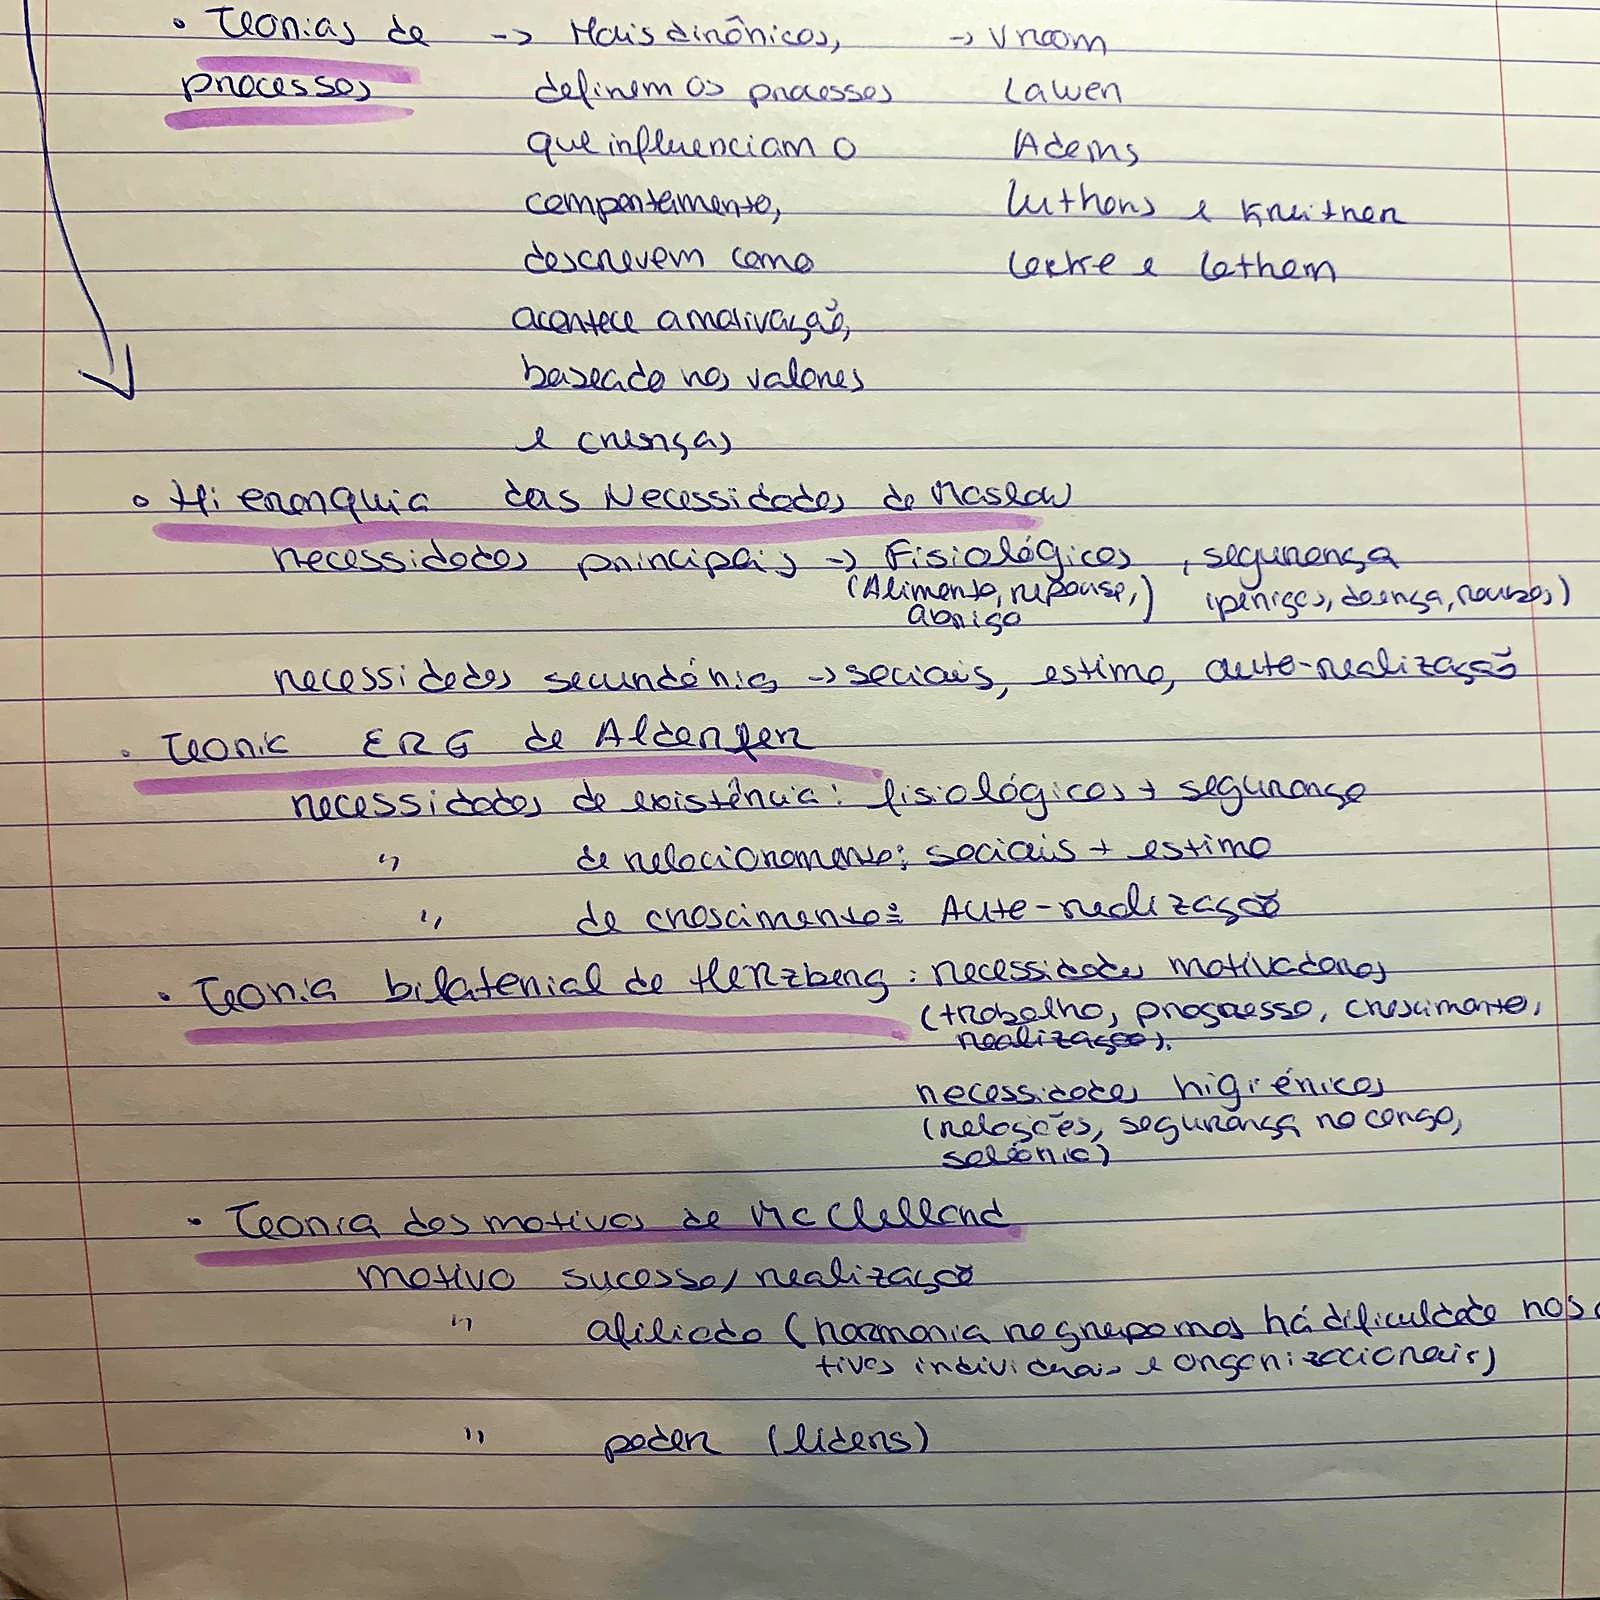 • Teorias de -> Mais dinâmicas, -> Vroom
processos definem os processos Lawler
que influenciam o Adams
comportamento, Luthans e Kreitner
descrevem como Locke e Latham
acontece a motivação,
baseado nos valores
e crenças
• Hierarquia das Necessidades de Maslow
necessidades principais -> Fisiológicas, segurança
(Alimento, repouso, abrigo) (perigos, doença, roubos,)
necessidades secundárias -> sociais, estima, auto-realização
• Teoria ERG de Alderfer
necessidades de existência: fisiológicas + segurança
" de relacionamento: sociais + estima
" de crescimento: Auto-realização
• Teoria bilaterial de Herzberg: necessidades motivadoras
(trabalho, progresso, crescimento,
realização).
necessidades higiénicas
(relações, segurança no cargo,
salário)
• Teoria dos motivos de McClelland
motivo sucesso/realização
" afiliado (harmonia no grupo mas há dificuldade nos
tivos individuais e organizacionais)
" poder (líders)